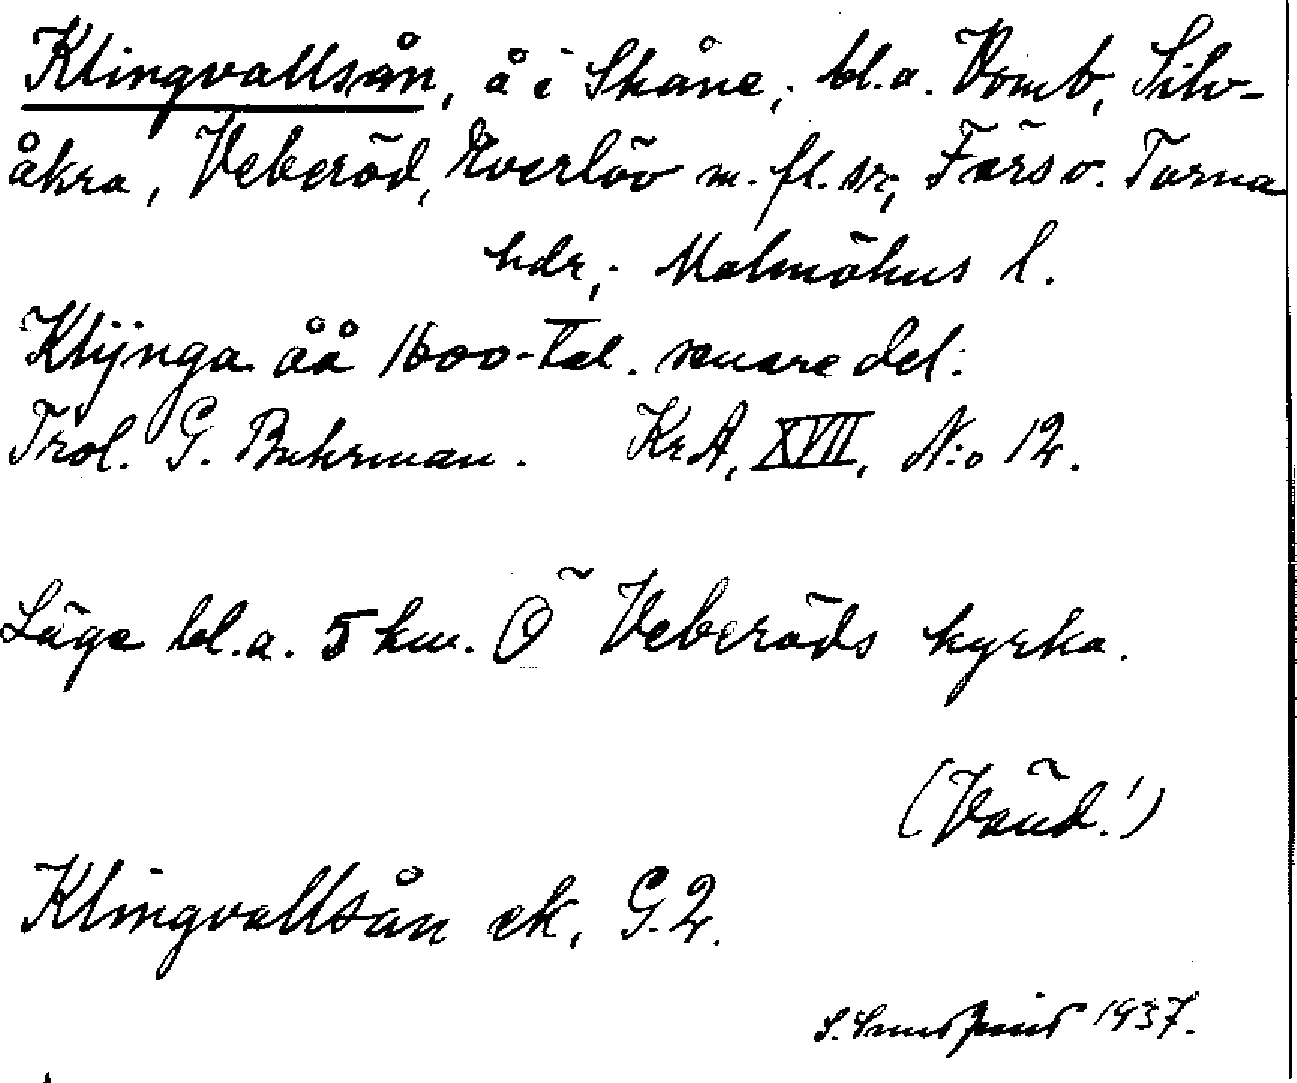 Klingvallsån, å i Skåne; bl.a. Vomb, Silv-
åkra, Veberöd, Everlöv m. fl. sr, Färs o. Torna
hdr; Malmöhus l.
Klijnga åå 1600-tal. senare del:
Trol. G. Buhrman. KrA, XVII, N:o 12.
Läge bl.a. 5 km. Ö Veberöds kyrka.
(Vänd!)
Klingvallsån ek, G.2.
1937.